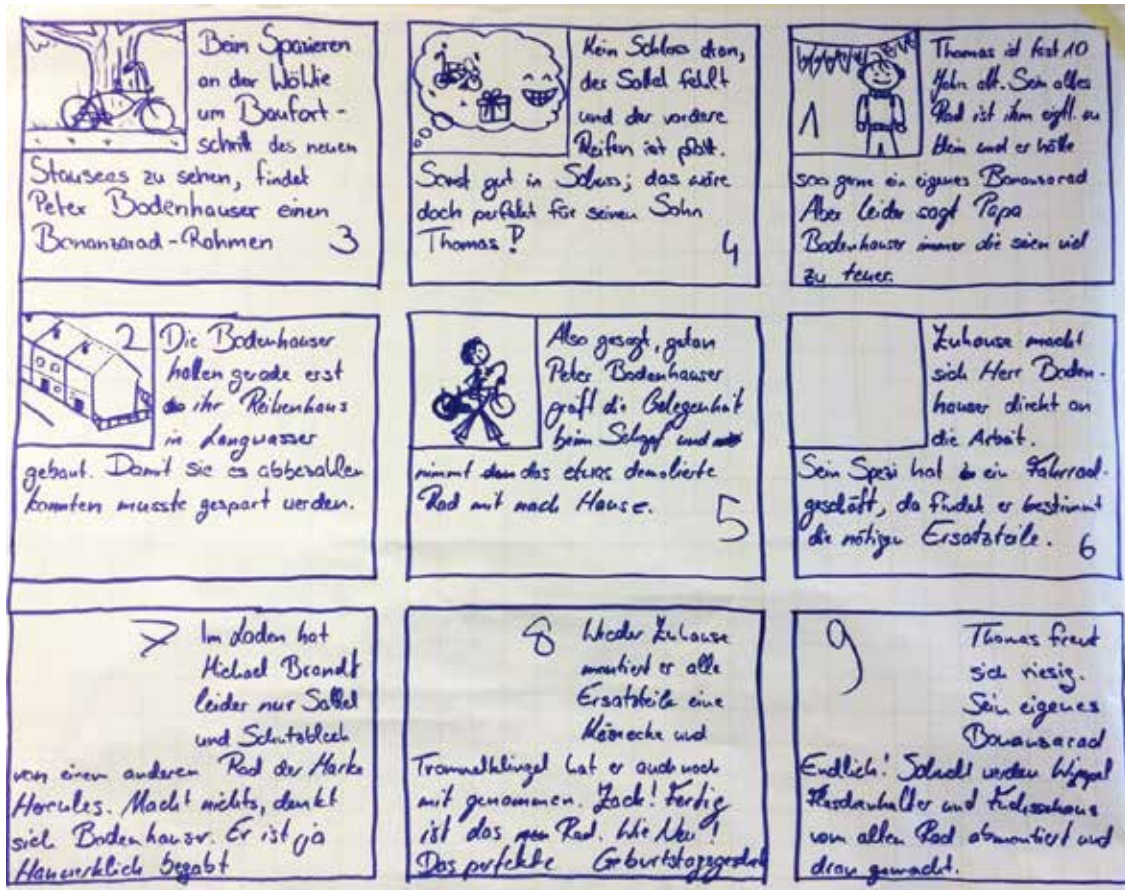 Beim Spazieren
an der Wöhrlie
um Baufort-
schritt des neuen
Stausees zu sehen, findet
Peter Bodenhauser einen
Bonanzarad-Rahmen 3
Kein Schloss dran,
der Sattel fehlt
und der vordere
Reifen ist platt.
Sonst gut in Schuss; das wäre
doch perfekt für seinen Sohn
Thomas!
4
1
Thomas ist fast 10
Jahre alt. Sein altes
Rad ist ihm eigtl. zu
klein und er hätte
soo gerne ein eigenes Bonanzarad
Aber leider sagt Papa
Bodenhauser immer die seien viel
zu teuer.
2
Die Bodenhauser
hatten gerade erst
ihr Reihenhaus
in Langwasser
gebaut. Damit sie es abbezahlen
konnten musste gespart werden.
Also gesagt, getan
Peter Bodenhauser
greift die Gelegenheit
beim Schopf und
nimmt das etwas demolierte
Rad mit nach Hause. 5
Zuhause macht
sich Herr Boden-
hauser direkt an
die Arbeit.
Sein Spezi hat ein Fahrrad-
geschäft, da findet er bestimmt
die nötigen Ersatzteile. 6
7 Im Laden hat
Michael Brandt
leider nur Sattel
und Schutzblech
von einem anderen Rad der Marke
Hercules. Macht nichts, denkt
sich Bodenhauser. Er ist ja
Hanwerklich begabt
8 Wieder Zuhause
montiert er alle
Ersatzteile eine
und
Trommelklingel hat er auch noch
mit genommen. Zack! Fertig
ist das Rad. Wie Neu!
Das perfekte Geburtstagsgeschenk
9 Thomas freut
sich riesig.
Sein eigenes
Bonanzarad
Endlich! Schnell werden Wimpel
Flaschenhalter und Fuchsschwanz
vom alten Rad abmontiert und
dran gemacht.